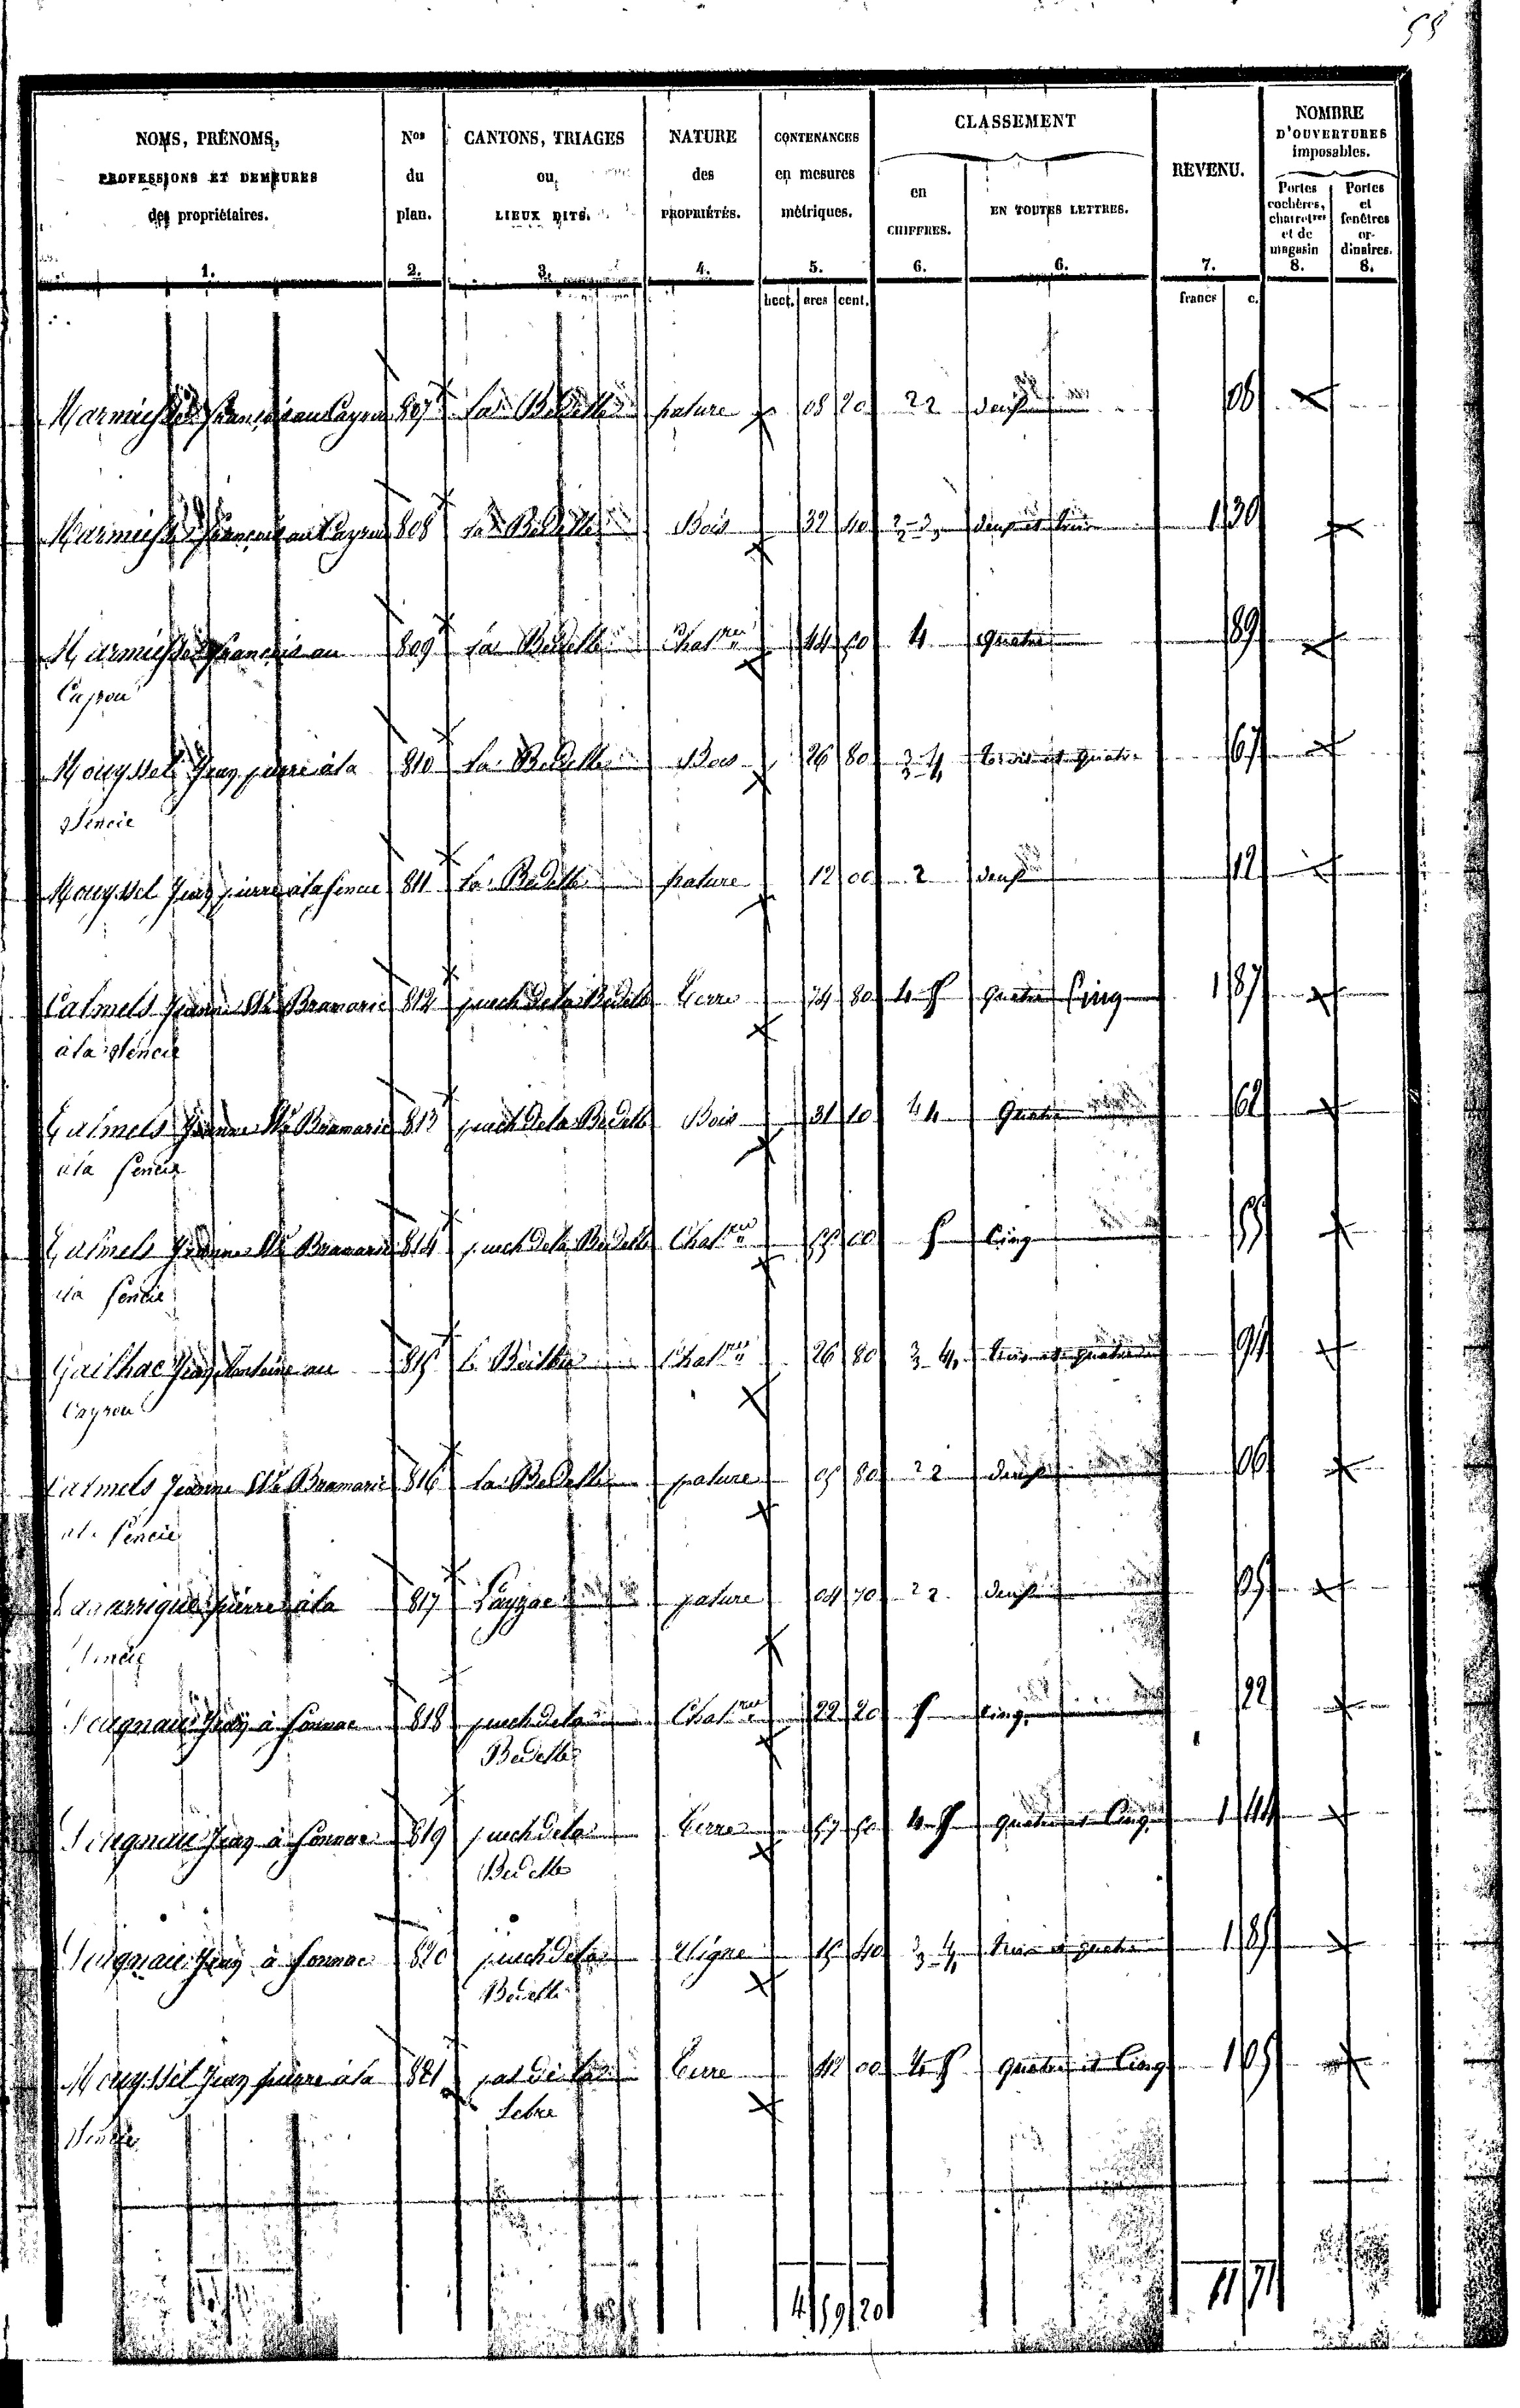 55
NOMS, PRÉNOMS, PROFESSIONS ET DEMEURES des propriétaires. 1.
Nos du plan. 2.
CANTONS, TRIAGES ou LIEUX DITS. 3.
NATURE des PROPRIÉTÉS. 4.
CONTENANCES en mesures métriques. 5.
CLASSEMENT
en CHIFFRES. 6.
EN TOUTES LETTRES. 6.
REVENU. 7.
NOMBRE D'OUVERTURES imposables.
Portes cochères, charretres et de magasin 8.
Portes et fenêtres ordinaires. 8.
hect. ares cent. francs c.
François au Cayrou 807 La Bedelle pature 08 20 22 deux 08
François au Cayrou 808 La Bedelle Bois 32 40 2-3 deux et trois 1 30
François au 809 La Bedelle Chatres 44 50 4 Quatre 89
Cayrou
Mouysset Jean pierre à la 810 La Bedelle Bois 26 80 3-4 trois et Quatre 67
Sencie
Mouysset Jean pierre à la Sencie 811 La Bedelle pature 12 00 2 deux 12
Calmels Jeanne Ve Bramarie 812 puech de la Bedelle Terre 74 80 4-5 Quatre Cinq 1 87
à la Sencie
Calmels Jeanne Ve Bramarie 813 puech de la Bedelle Bois 31 10 44 Quatre 62
à la Sencie
Calmels Jeanne Ve Bramarie 814 puech de la Bedelle Chatres 55 00 5 Cinq 55
à la Sencie
Gailhac Jean Antoine au 815 Chatres 26 80 3-4 trois et quatre 94
Cayrou
Calmels Jeanne Ve Bramarie 816 La Bedelle pature 05 80 22 deux 06
à la Sencie
pierre à la 817 pature 04 70 22 deux 05
Sencie
Jean à Sonnac 818 puech de la Chatres 22 20 5 Cinq 22
Bedelle
Jean à Sonnac 819 puech de la Terre 57 50 4-5 Quatre et Cinq 1 44
Bedelle
Jean à Sonnac 820 puech de la Vigne 15 40 3-4 trois et quatre 1 85
Bedelle
Mouysset Jean pierre à la 821 Terre 42 00 4-5 Quatre et Cinq 1 05
Sencie Lebre
4 59 20 11 71